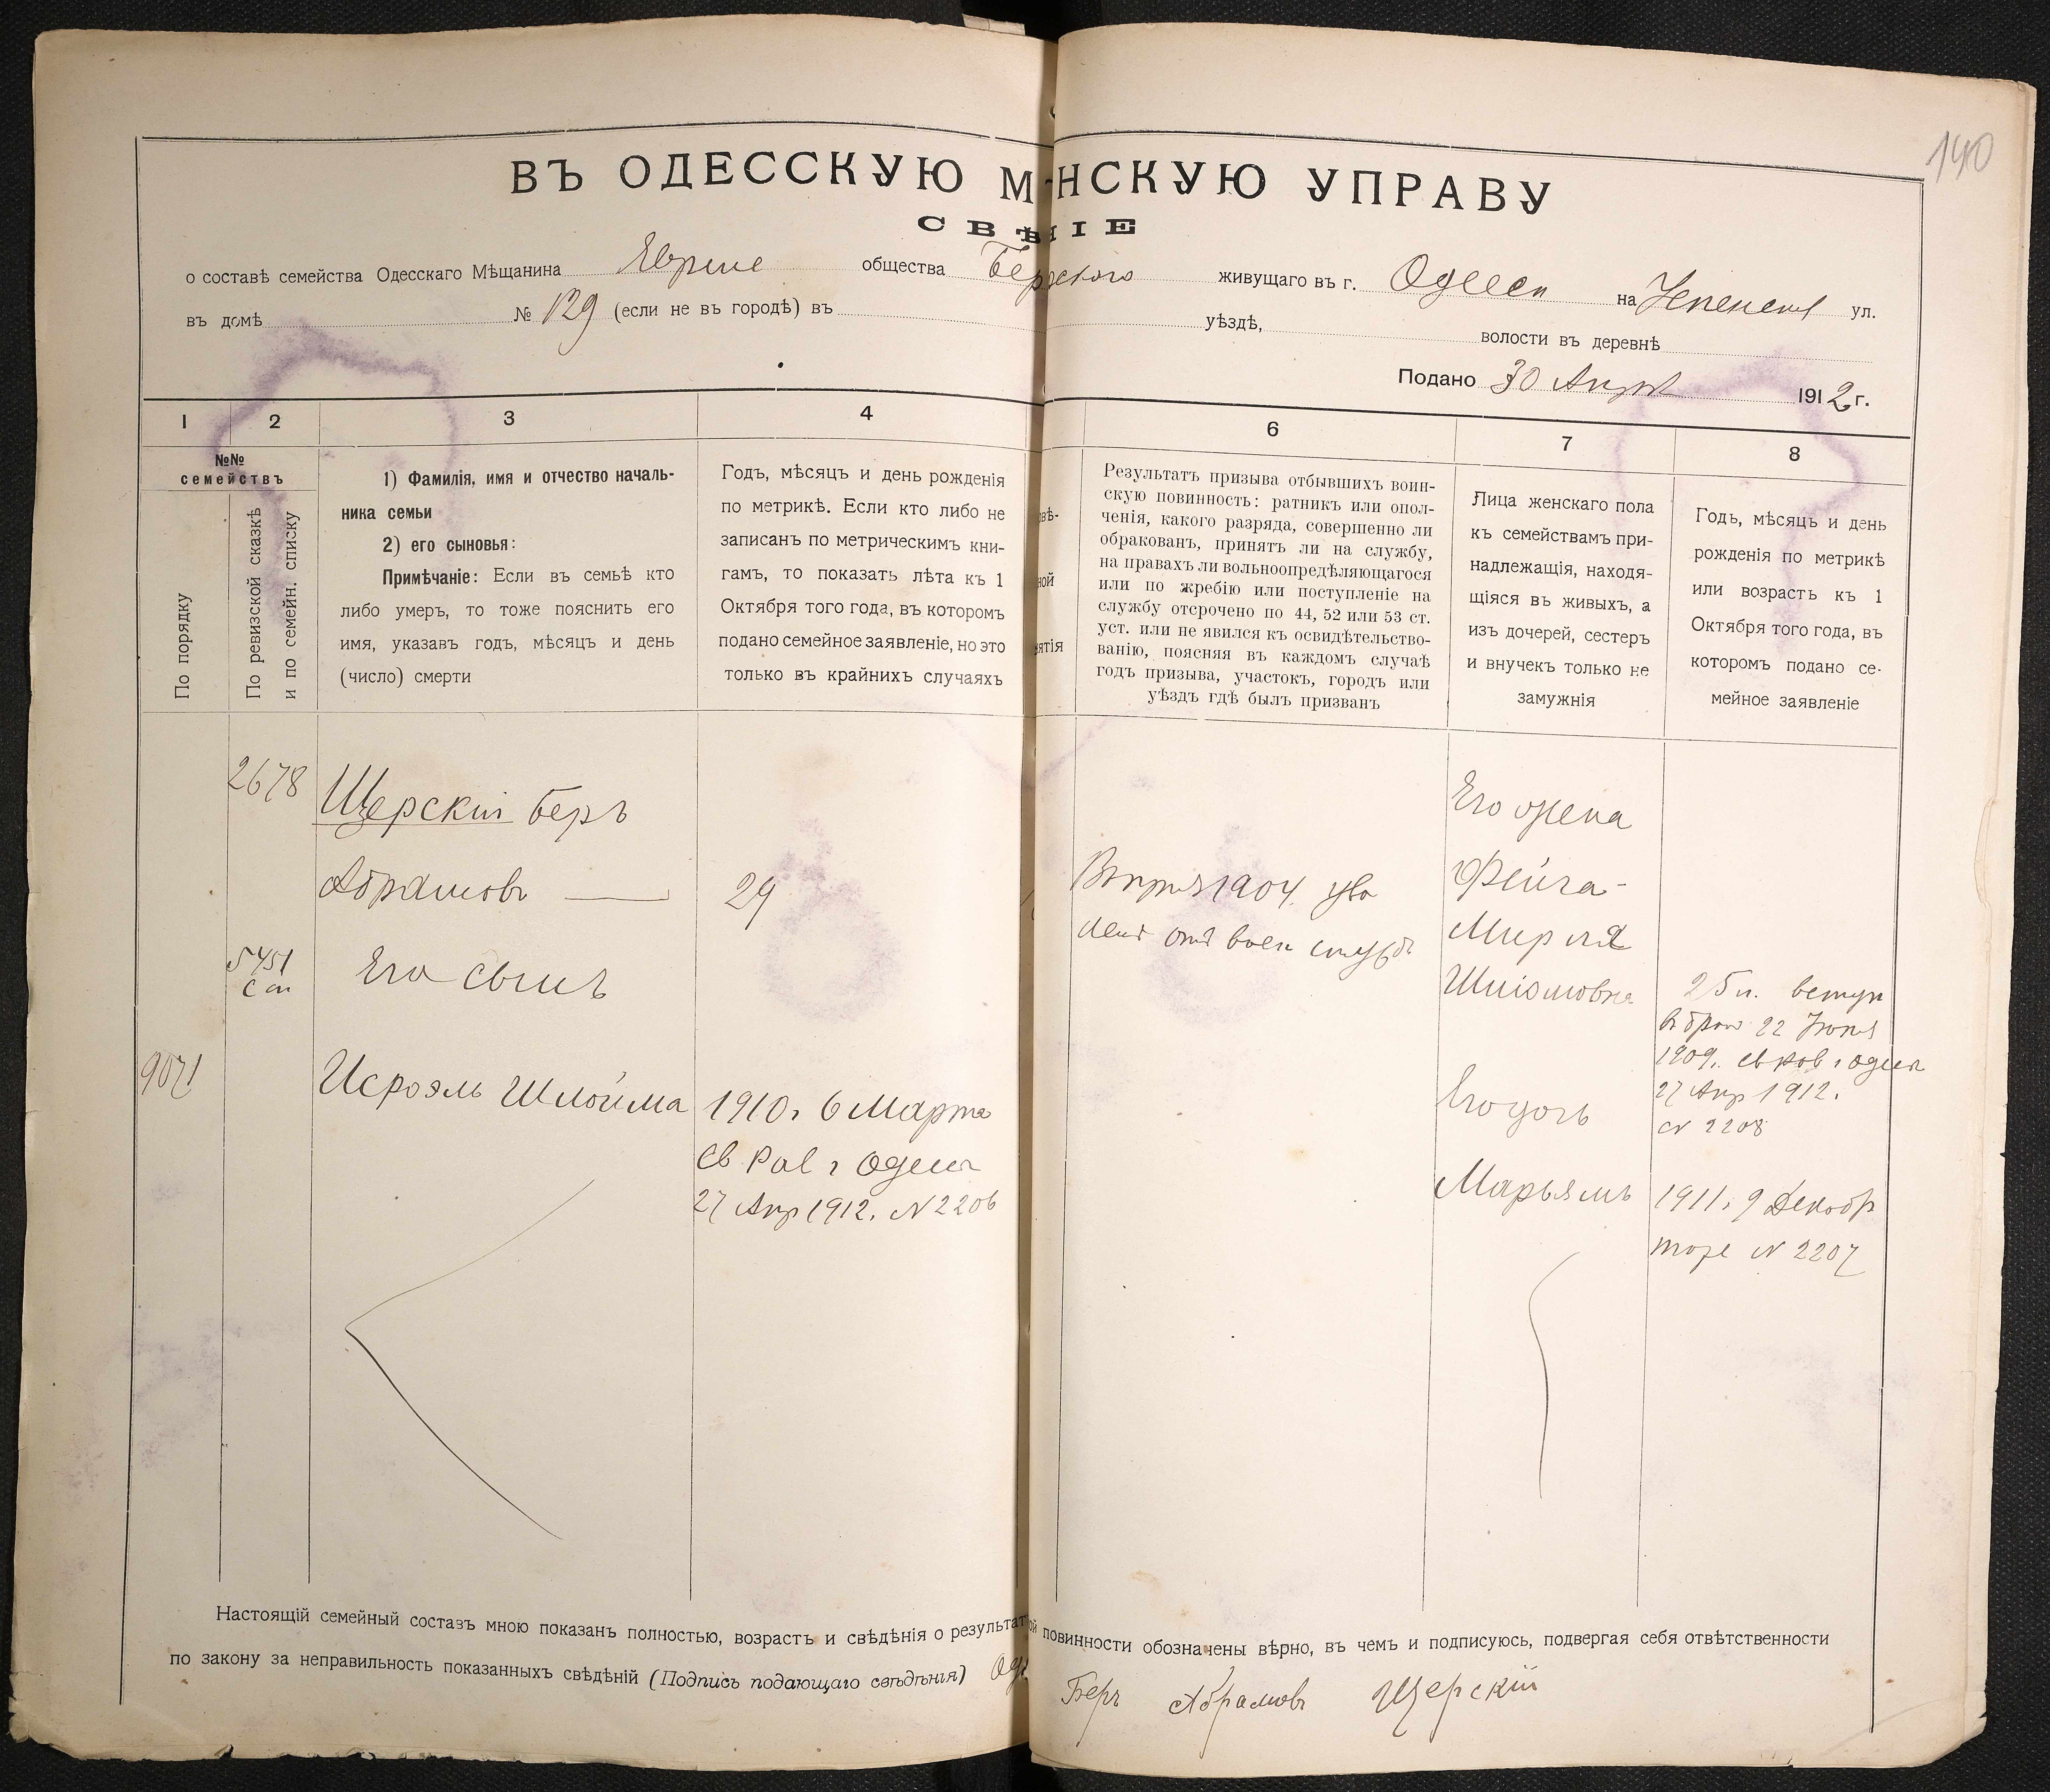 140
ВЪ ОДЕССКУЮ М НСКУЮ УПРАВУ
СВѢ НІЕ
о составѣ семейства Одесскаго Мѣщанина общества живущаго въ г. Одессы на Успенск ул.
въ домѣ № 129 (если не въ городѣ) въ уѣздѣ, волости въ деревнѣ
Подано 30 Апрѣл 1912 г.
1 2 3 4 6 7 8
№№
семействъ
По порядку
По ревизской сказкѣ
и по семейн. списку
1) Фамилія, имя и отчество началь-
ника семьи
2) его сыновья:
Примѣчаніе: Если въ семьѣ кто
либо умеръ, то тоже пояснить его
имя, указавъ годъ, мѣсяцъ и день
(число) смерти
Годъ, мѣсяцъ и день рожденія
по метрикѣ. Если кто либо не
записанъ по метрическимъ кни-
гамъ, то показать лѣта къ 1
Октября того года, въ которомъ
подано семейное заявленіе, но это
только въ крайнихъ случаяхъ
вѣ-
ной
ятія
Результатъ призыва отбывшихъ воин-
скую повинность: ратникъ или опол-
ченія, какого разряда, совершенно ли
обракованъ, принятъ ли на службу,
на правахъ ли вольноопредѣляющагося
или по жребію или поступленіе на
службу отсрочено по 44, 52 или 53 ст.
уст. или не явился къ освидѣтельство-
ванію, поясняя въ каждомъ случаѣ
годъ призыва, участокъ, городъ или
уѣздъ гдѣ былъ призванъ
Лица женскаго пола
къ семействамъ при-
надлежащія, находя-
щіяся въ живыхъ, а
изъ дочерей, сестеръ
и внучекъ только не
замужнія
Годъ, мѣсяцъ и день
рожденія по метрикѣ
или возрастъ къ 1
Октября того года, въ
которомъ подано се-
мейное заявленіе
2678
Щерскій Беръ
Абрамовъ
29
5451
с сп
Его сынъ
9071
Исроэль Шлойма
1910 г 6 Марта
св Рав г Одессы
27 Апр 1912. N 2206
1904
Его жена
Фейга-
Мирля
Шліомовна
25 л. вступ
в брак 22 Іюня
1909 г. св Рав г Одессы
27 Апр 1912.
N 2208
Его дочь
Марьямъ
1911 г 9 Декабр
тоже N 2207
Настоящій семейный составъ мною показанъ полностью, возрастъ и свѣдѣнія о результат ой повинности обозначены вѣрно, въ чемъ и подписуюсь, подвергая себя отвѣтственности
по закону за неправильность показанныхъ свѣдѣній (Подпись подающаго свѣдѣнія) Оде
Беръ Абрамовъ Щерскій